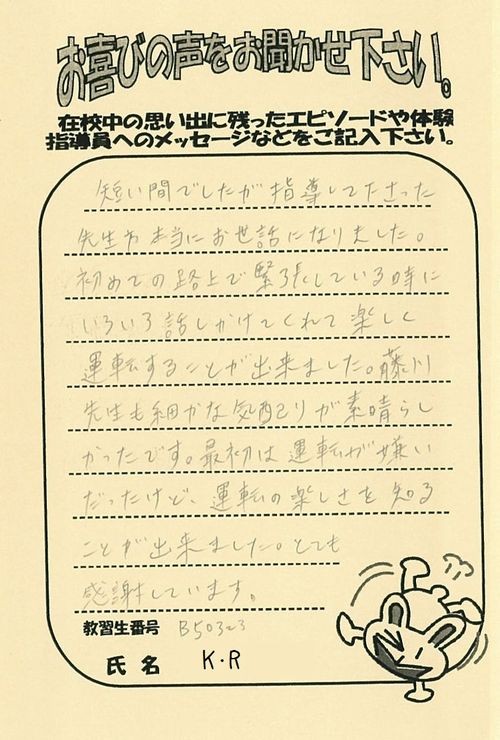 お喜びの声をお聞かせ下さい。
在校中の思い出に残ったエピソードや体験
指導員へのメッセージなどをご記入下さい。
短い間でしたが指導して下さった
先生方本当にお世話になりました。
初めての路上で緊張している時に
いろいろ話しかけてくれて楽しく
運転することが出来ました。藤川
先生も細かな気配りが素晴らし
かったです。最初は運転が嫌い
だったけど、運転の楽しさを知る
ことが出来ました。とても
感謝しています。
教習生番号 B50323
氏名 K・R